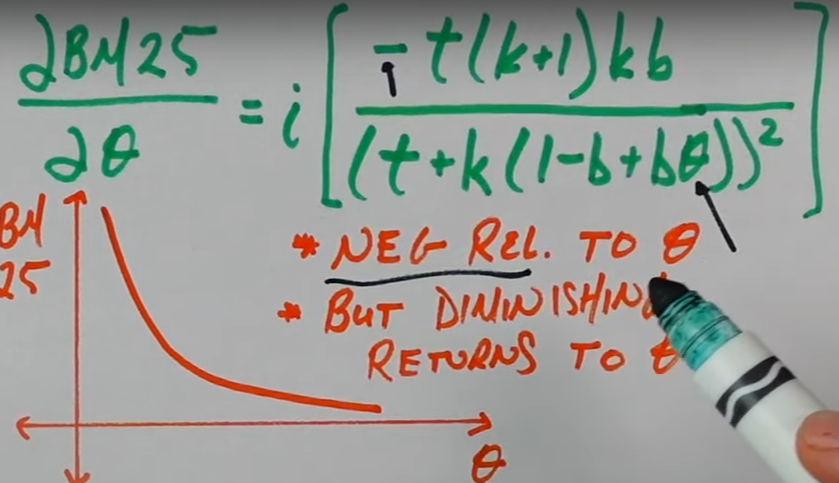 ∂BM25 / ∂θ = i [ - t(k+1)kb / (t+k(1-b+bθ))² ]
BM
25
* NEG REL. TO θ
* BUT DIMINISHING
RETURNS TO θ
θ